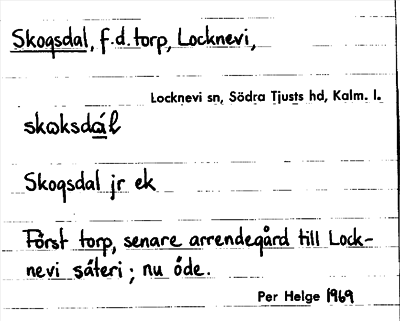 Skogsdal, f.d. torp, Locknevi,
Locknevi sn, Södra Tjusts hd, Kalm. l.
skɷksdál
Skogsdal jr ek
Först torp, senare arrendegård till Lock-
nevi säteri; nu öde.
Per Helge 1969